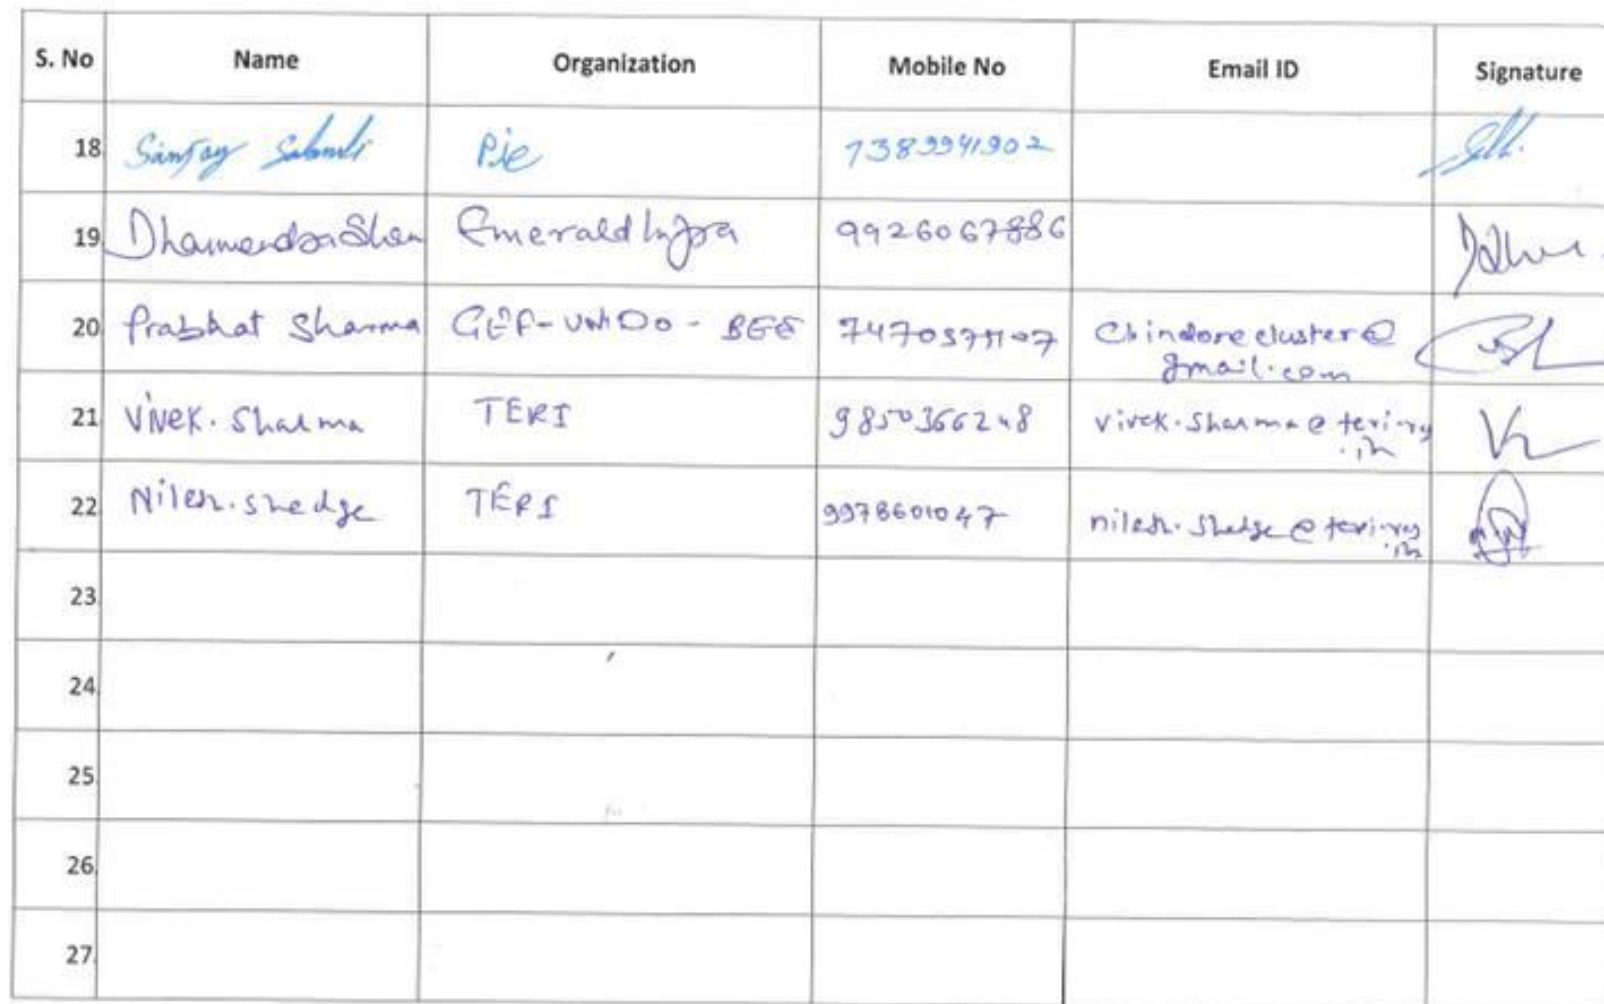 S. No Name Organization Mobile No Email ID Signature
18 Sanjay Pie 7389941902
19 Dharmendra Emerald Infra 9926067886
20 Prabhat Sharma GEF-UNIDO-BEE Cbindorecluster@
gmail.com
21 Vivek. Sharma TERI 9850366248 vivek.sharma@teri.res
.in
22 Nilesh. Shedge TERI 9978601047 nilesh.shedge@teri.res
.in
23
24
25
26
27